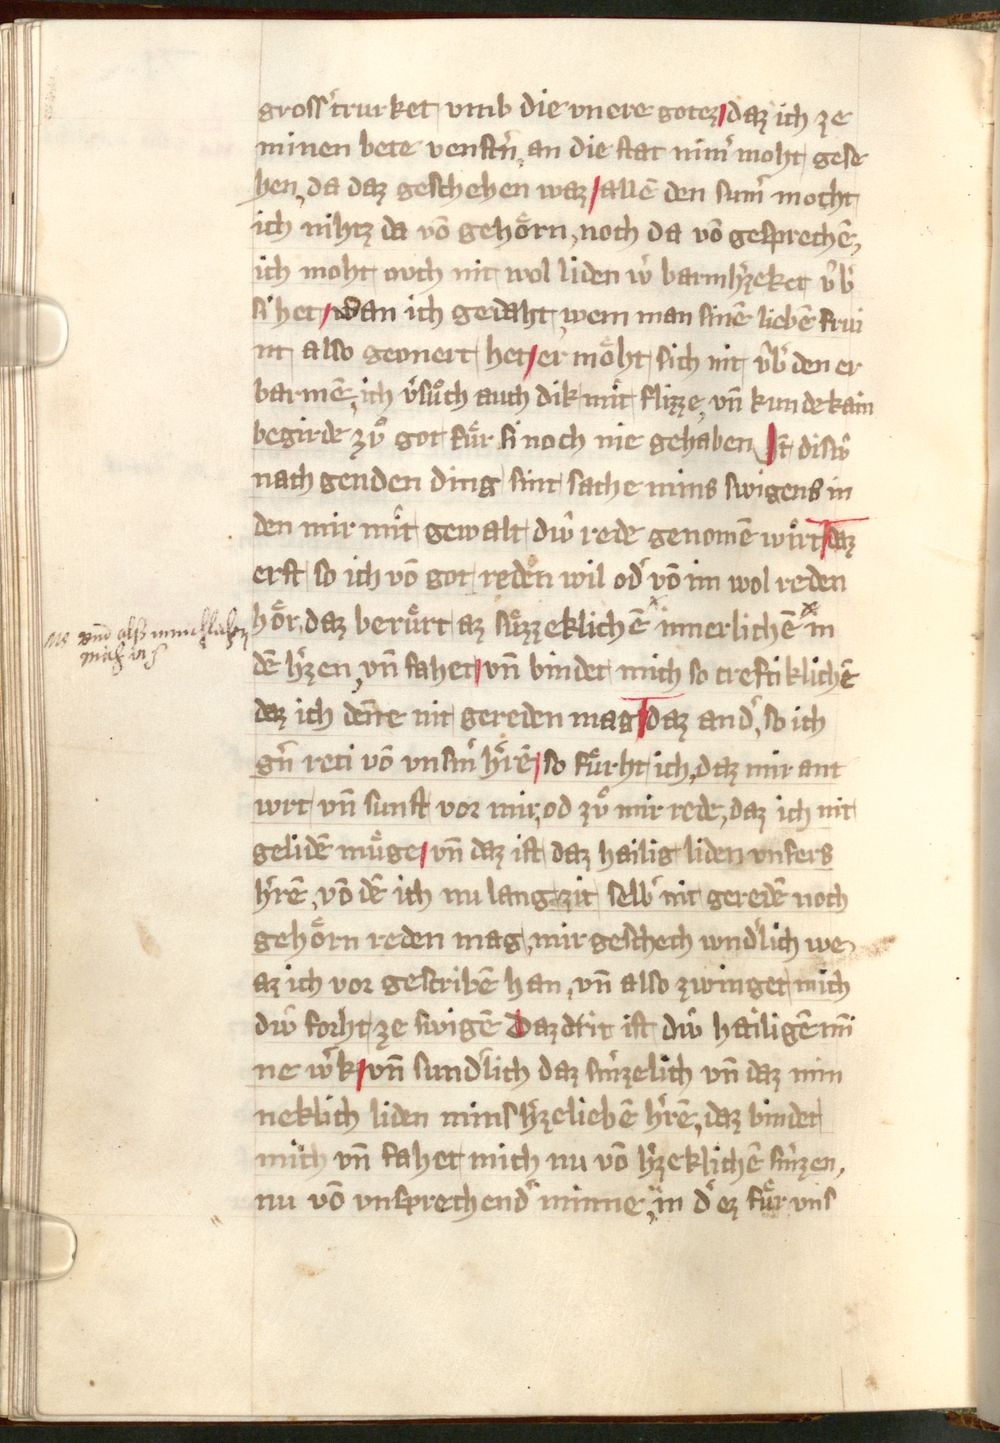 grosse trurket vmb die vnere gotez daz ich ze
minen bete venstn̄ an die stat nim̄ moht gese
hen, da daz geschehen waz allē den sum̄ mocht
ich nihtz da vō gehoͤrn, noch da vō gesprechē,
ich moht ovch nit wol liden w̓ barmh̓zeket v̓b̓
si het, wan ich gedaht, wem man sinē liebē frui
nt also geonert het er moͤht sich nit v̓b̓ den er
barmē, ich v̓suͦch auch dik mit flizze, vn̄ kunde kain
begirde zvͦ got fuͤr si noch nie gehaben It disw̓
nach genden ding sint sache mins swigens in
den mir mit gewalt diw̓ rede genomē wirt daz
erst so ich vō got reden wil od̓ vō im wol reden
hoͤr, daz beruͤrt az suͤzzeklichē innerlichē in
dē h̓zen, vn̄ fahet vn̄ bindet mich so creftiklichē
daz ich deñe nit gereden mag daz and̓, so ich
gn̄ reti vō vnsm̄ h̓rē so fuͤrht ich, daz mir ant
wrt vn̄ sunst vor mir, od zvͦ mir rede, daz ich nit
gelidē muͤge vn̄ daz ist daz hailig liden vnsers
h̓rē, vō dē ich nu lang zit selb̓ nit geredē noch
gehoͤrn reden mag, mir geschech wnd̓lich we
az ich vor gescribē han, vn̄ also zwinget mich
diw̓ forht ze swigē Daz drit ist diw̓ hailigē mī
ne w̓k vn̄ sund̓lich daz sm̓zelich vn̄ daz min
neklich liden mins h̓zeliebē h̓rē, daz bindet
mich vn̄ fahet mich nu vō h̓zeklichē sm̓zen,
nu vō vnsprechend̓ minne, in d̓ ez fuͤr vns
vnd alß
mich